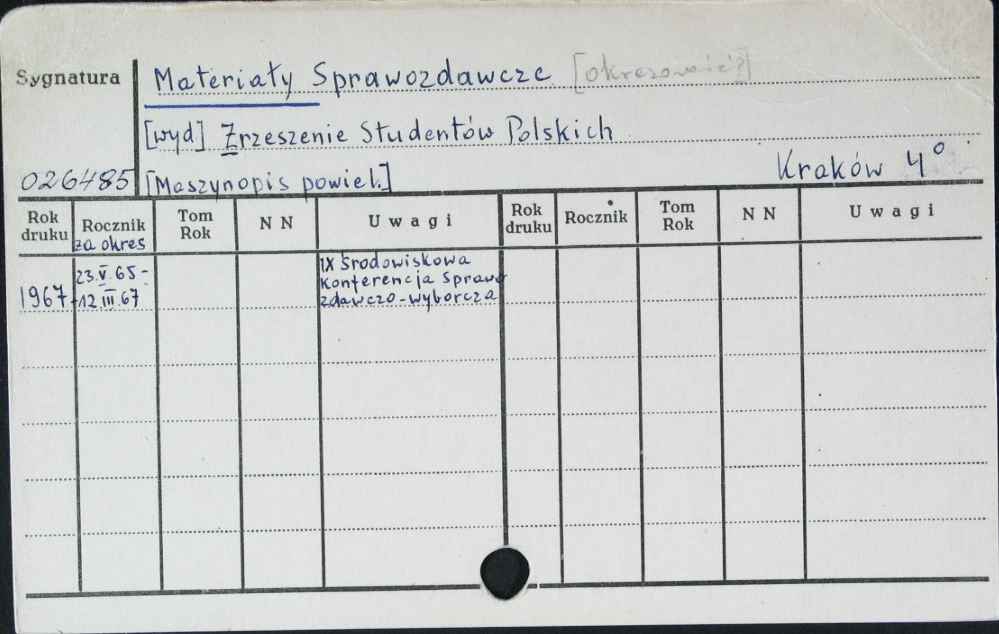 Sygnatura
Materiały Sprawozdawcze [okresowość?]
[wyd] Zrzeszenie Studentów Polskich
026485 [Maszynopis powiel.] Kraków 4°
Rok druku Rocznik za okres Tom Rok N N Uwagi Rok druku Rocznik Tom Rok N N Uwagi
1967 23.V.65- 12.III.67 IX Środowiskowa
Konferencja Sprawo
zdawczo-wyborcza